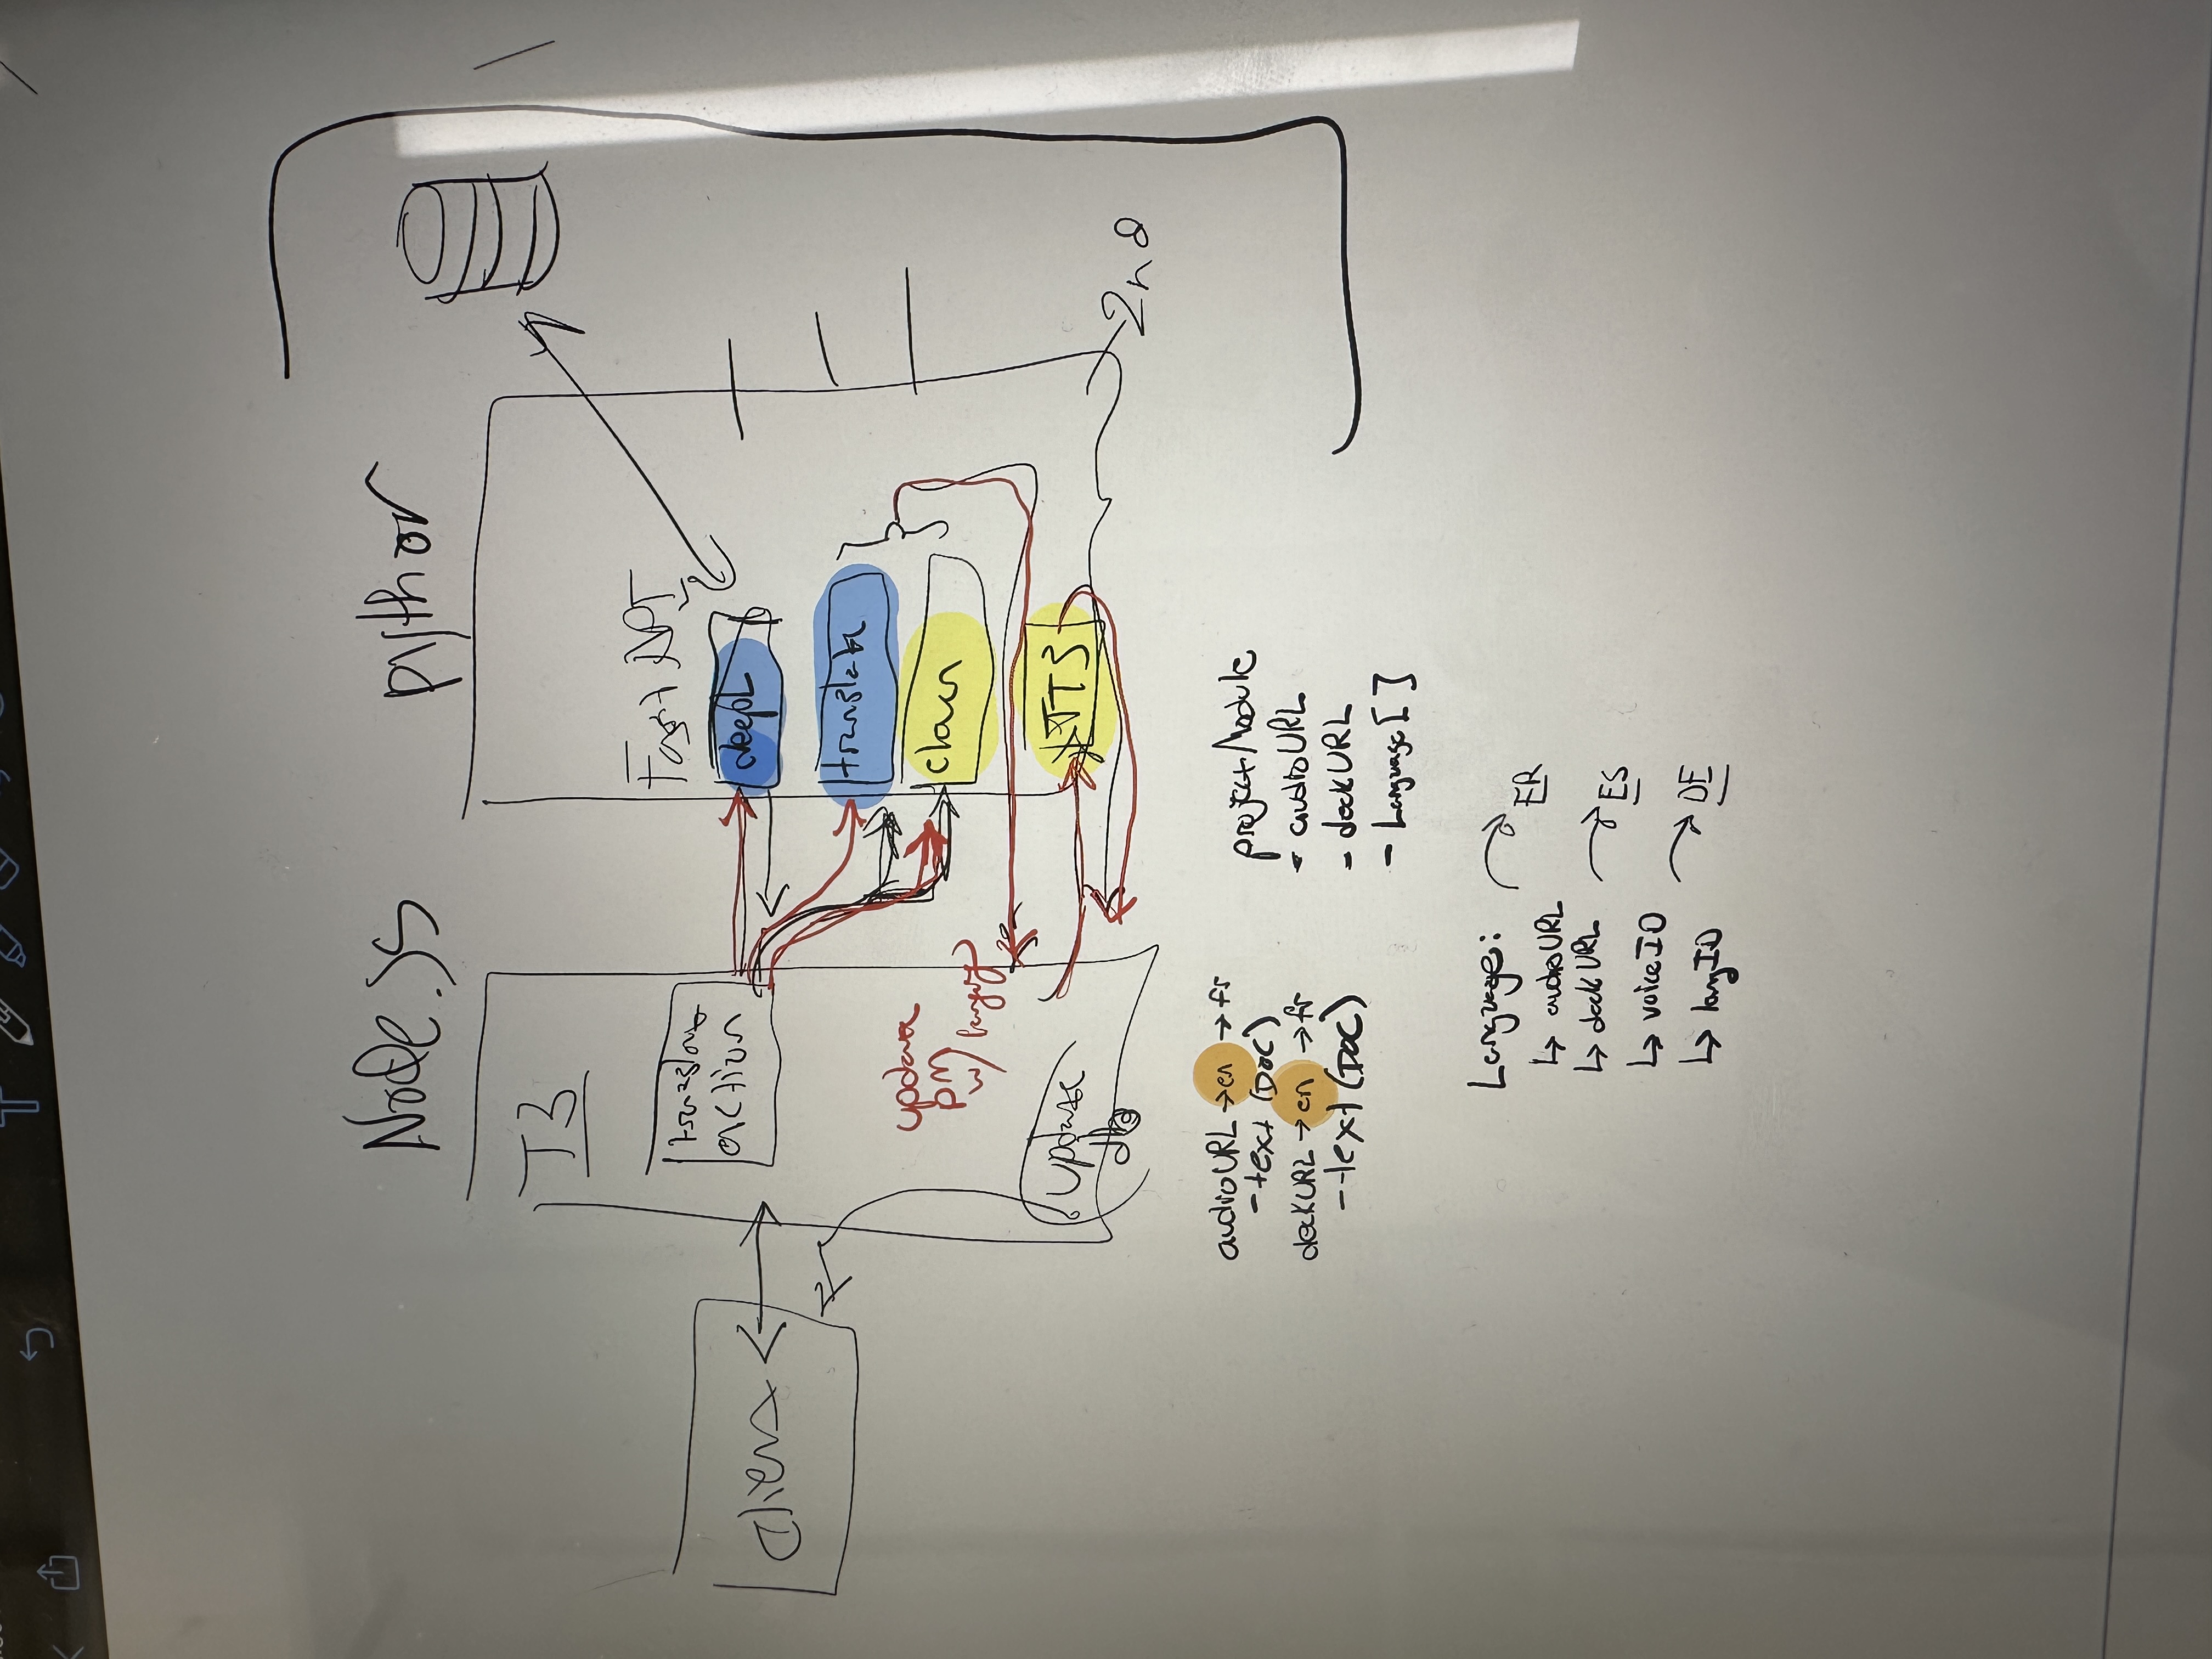 Node.js
python
T3
Fast API
client
translate
action
deepL
translate
clean
TTS
update
pm
w/
update
db
audioURL → en → fr
- text (DOC)
deckURL → en → fr
- text (DOC)
project/Module
- audioURL
- deckURL
- Language [ ]
Languages:
↳ audioURL
↳ deckURL
↳ voiceID
↳ langID
FR
ES
DE